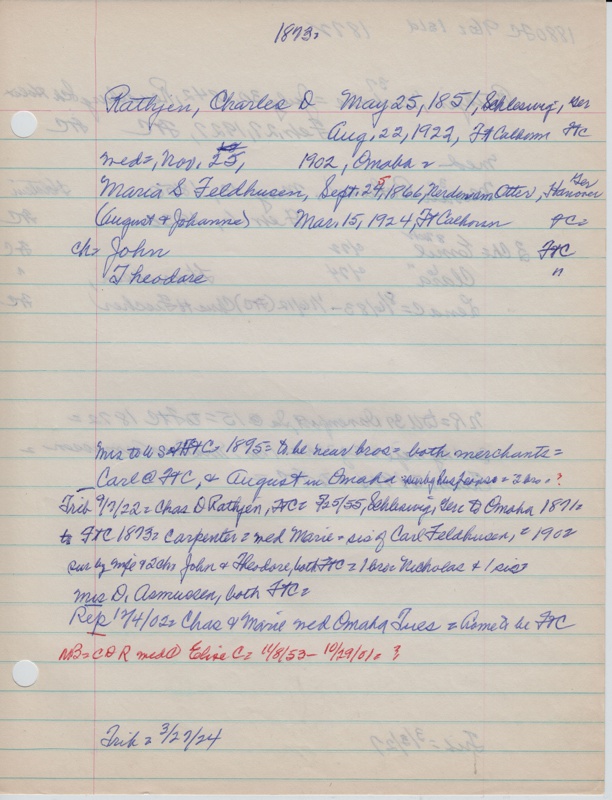 1873=
Rathjen, Charles D May 25, 1851, Schleswig, Ger
Aug, 22, 1922, Ft Calhoun FtC
med=, Nov, 25, 1902, Omaha =
Maria S Feldhusen, Sept, 25, 1866, Otter, Hanover Ger
(August & Johanna) Mar, 15, 1924, Ft Calhoun FC=
ch= John FtC
Theodore "
Mrs to US & FtC 1895= to be near bros= both merchants=
Carl @ FtC, & August in Omaha = 2 bro = ?
Trib 9/7/22= Chas D Rathjen, FtC= 5/25/55, Schleswig, Ger to Omaha 1871=
to FtC 1873= Carpenter= med Marie= sis of Carl Feldhusen, = 1902
sur by wife & 2 chs John & Theodore, both FtC= 1 bro= Nicholas & 1 sis=
Mrs D, Asmussen, both FtC=
Rep 12/4/02= Chas & Marie med Omaha Tues = home to be FtC
NB= C D R med @ Elise C= 11/8/53- 10/29/01= ?
Trib = 3/27/24